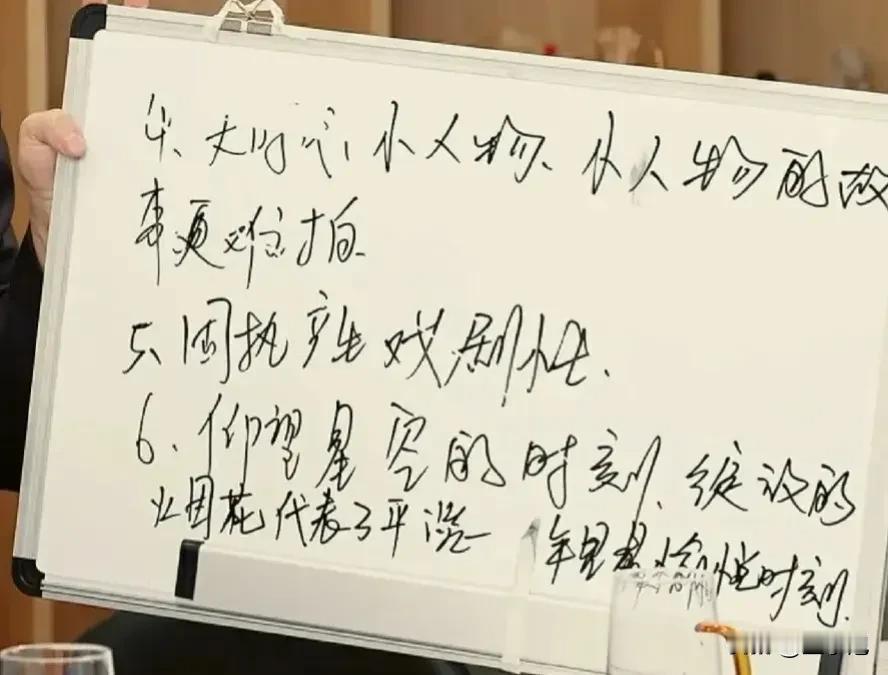 4、大时代小人物、小人物的故
事更难拍.
5、固执产生戏剧性.
6、仰望星空的时刻、绽放的
烟花代表了平淡一年里最愉悦时刻.